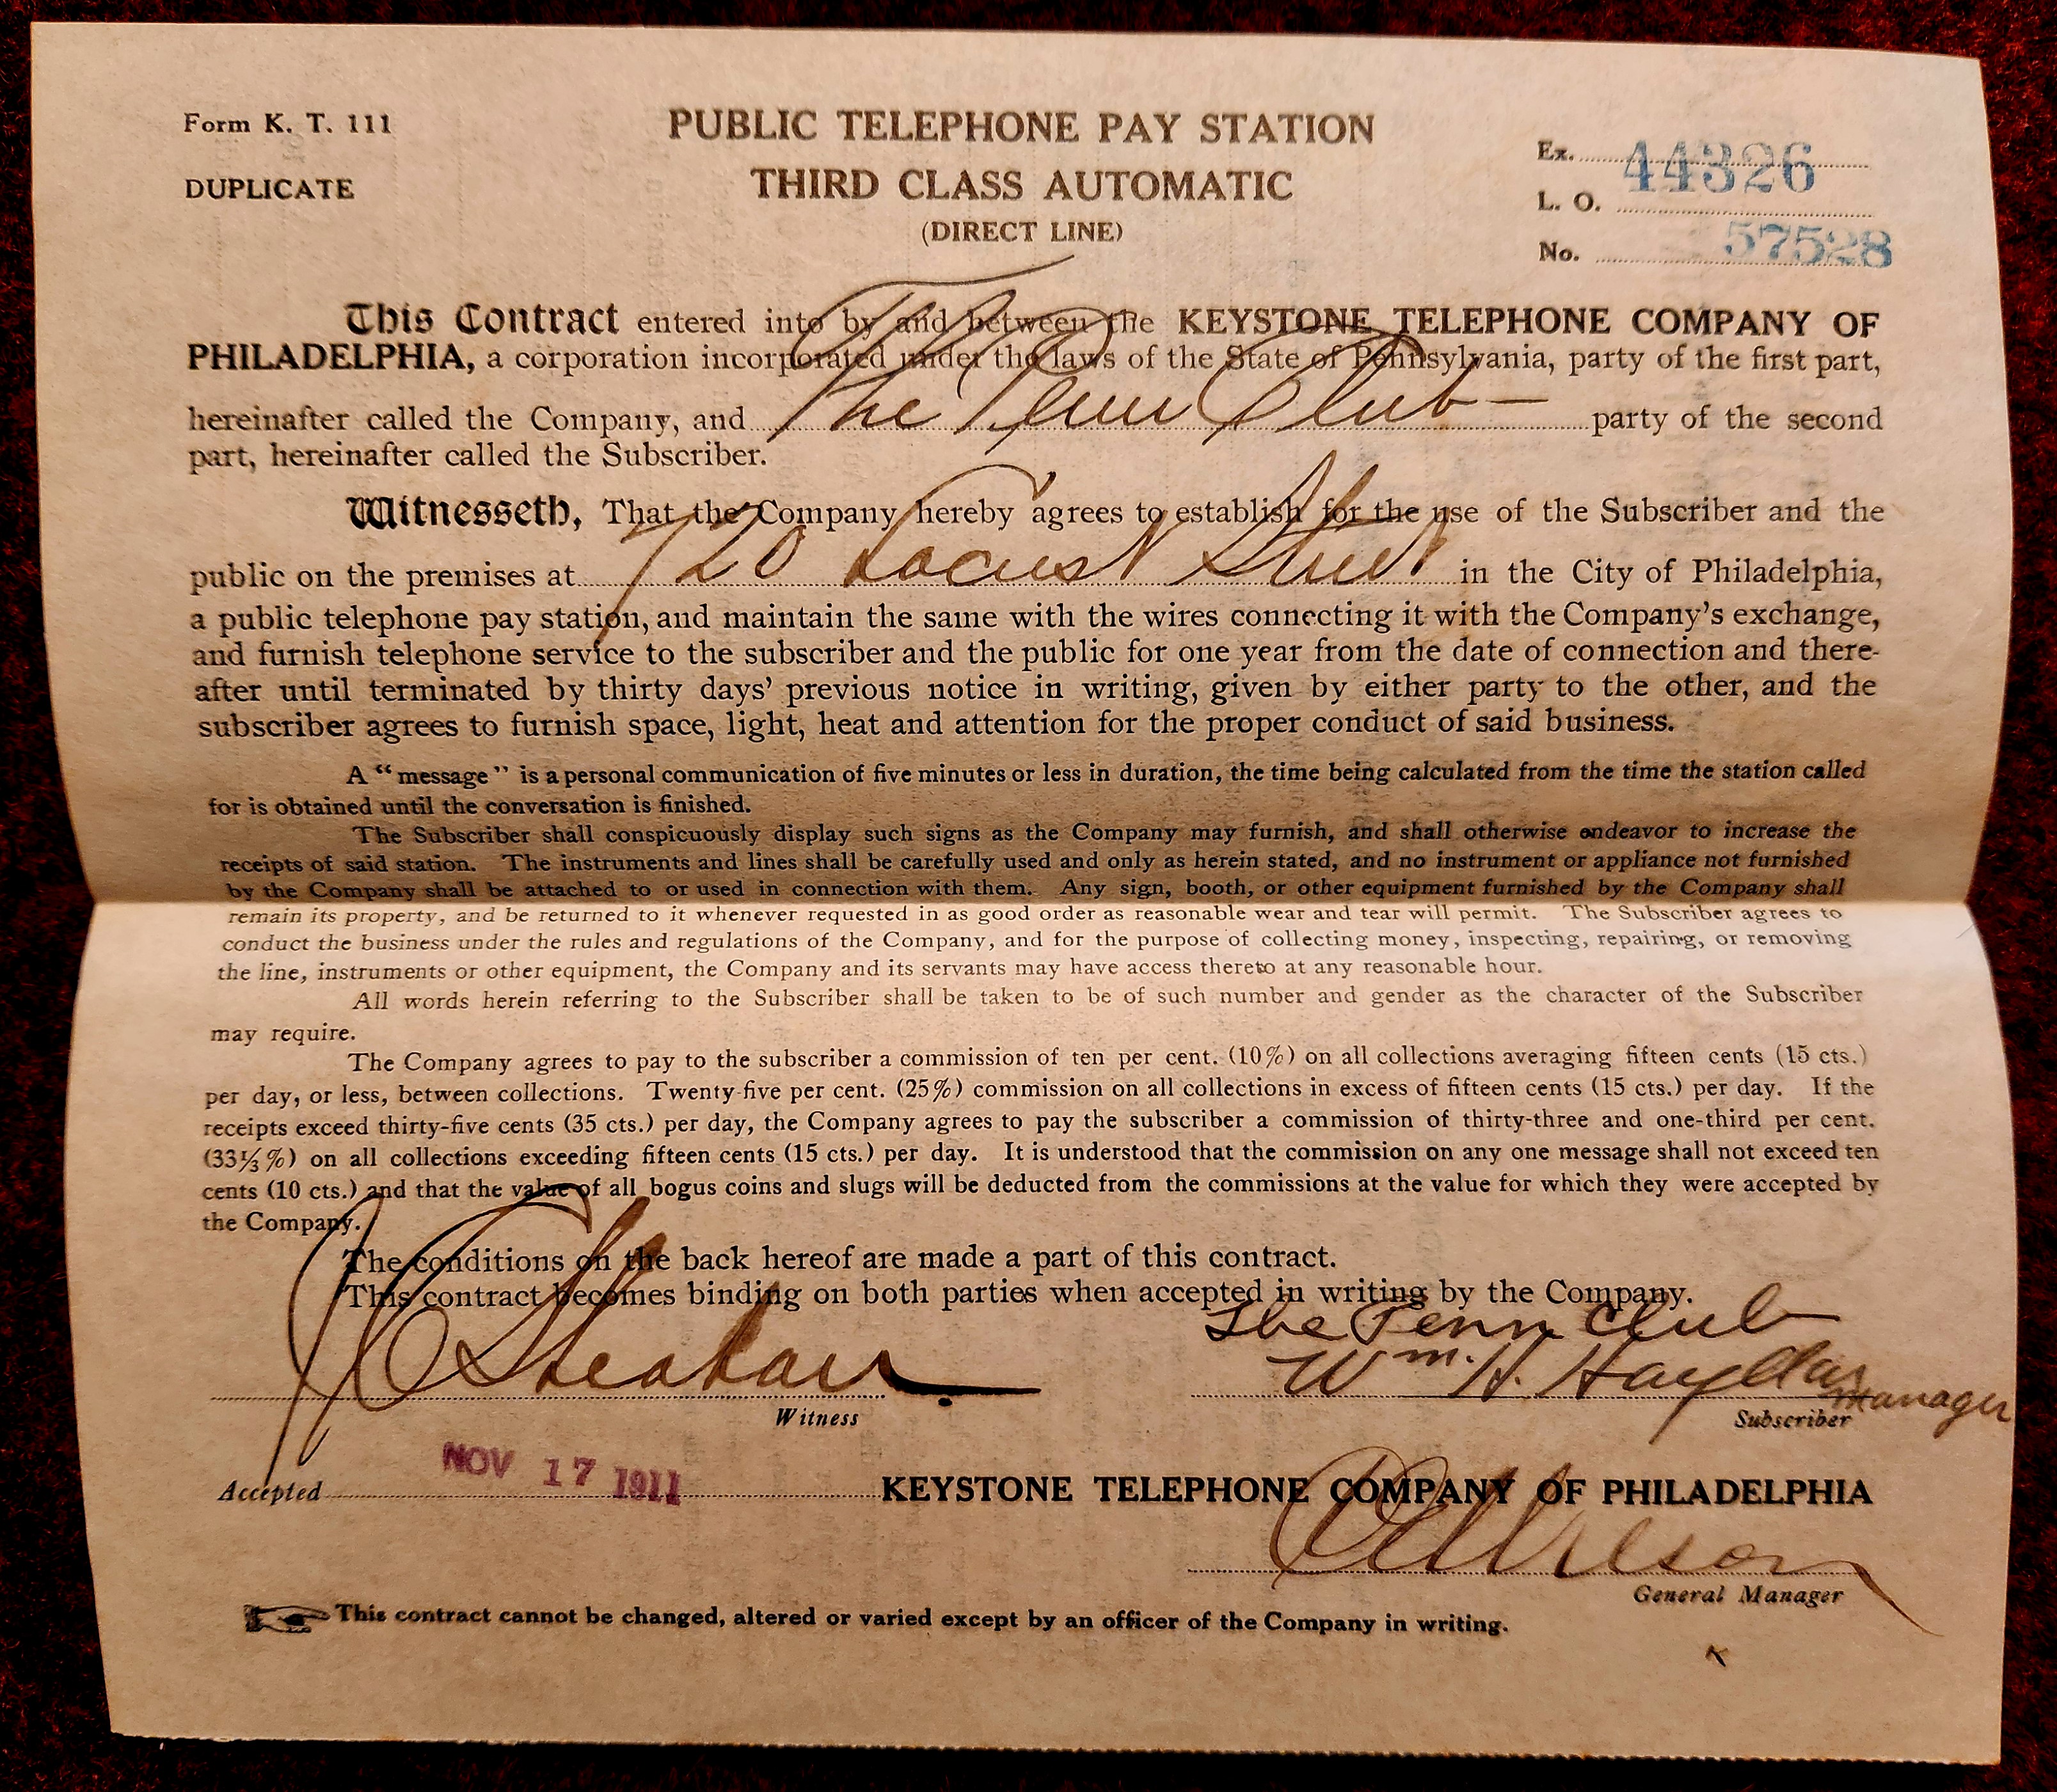 Form K. T. 111
DUPLICATE
PUBLIC TELEPHONE PAY STATION
THIRD CLASS AUTOMATIC
(DIRECT LINE)
Ex. 44326
L. O.
No. 57528
This Contract entered into by and between the KEYSTONE TELEPHONE COMPANY OF
PHILADELPHIA, a corporation incorporated under the laws of the State of Pennsylvania, party of the first part,
hereinafter called the Company, and The Penn Club party of the second
part, hereinafter called the Subscriber.
Witnesseth, That the Company hereby agrees to establish for the use of the Subscriber and the
public on the premises at 720 Locust Street in the City of Philadelphia,
a public telephone pay station, and maintain the same with the wires connecting it with the Company's exchange,
and furnish telephone service to the subscriber and the public for one year from the date of connection and there-
after until terminated by thirty days' previous notice in writing, given by either party to the other, and the
subscriber agrees to furnish space, light, heat and attention for the proper conduct of said business.
A "message" is a personal communication of five minutes or less in duration, the time being calculated from the time the station called
for is obtained until the conversation is finished.
The Subscriber shall conspicuously display such signs as the Company may furnish, and shall otherwise endeavor to increase the
receipts of said station. The instruments and lines shall be carefully used and only as herein stated, and no instrument or appliance not furnished
by the Company shall be attached to or used in connection with them. Any sign, booth, or other equipment furnished by the Company shall
remain its property, and be returned to it whenever requested in as good order as reasonable wear and tear will permit. The Subscriber agrees to
conduct the business under the rules and regulations of the Company, and for the purpose of collecting money, inspecting, repairing, or removing
the line, instruments or other equipment, the Company and its servants may have access thereto at any reasonable hour.
All words herein referring to the Subscriber shall be taken to be of such number and gender as the character of the Subscriber
may require.
The Company agrees to pay to the subscriber a commission of ten per cent. (10%) on all collections averaging fifteen cents (15 cts.)
per day, or less, between collections. Twenty-five per cent. (25%) commission on all collections in excess of fifteen cents (15 cts.) per day. If the
receipts exceed thirty-five cents (35 cts.) per day, the Company agrees to pay the subscriber a commission of thirty-three and one-third per cent.
(33⅓%) on all collections exceeding fifteen cents (15 cts.) per day. It is understood that the commission on any one message shall not exceed ten
cents (10 cts.) and that the value of all bogus coins and slugs will be deducted from the commissions at the value for which they were accepted by
the Company.
The conditions on the back hereof are made a part of this contract.
This contract becomes binding on both parties when accepted in writing by the Company.
The Penn Club
Wm. H. Hayllar
Manager
Witness
Subscriber
Accepted NOV 17 1911 KEYSTONE TELEPHONE COMPANY OF PHILADELPHIA
Wilson
General Manager
This contract cannot be changed, altered or varied except by an officer of the Company in writing.